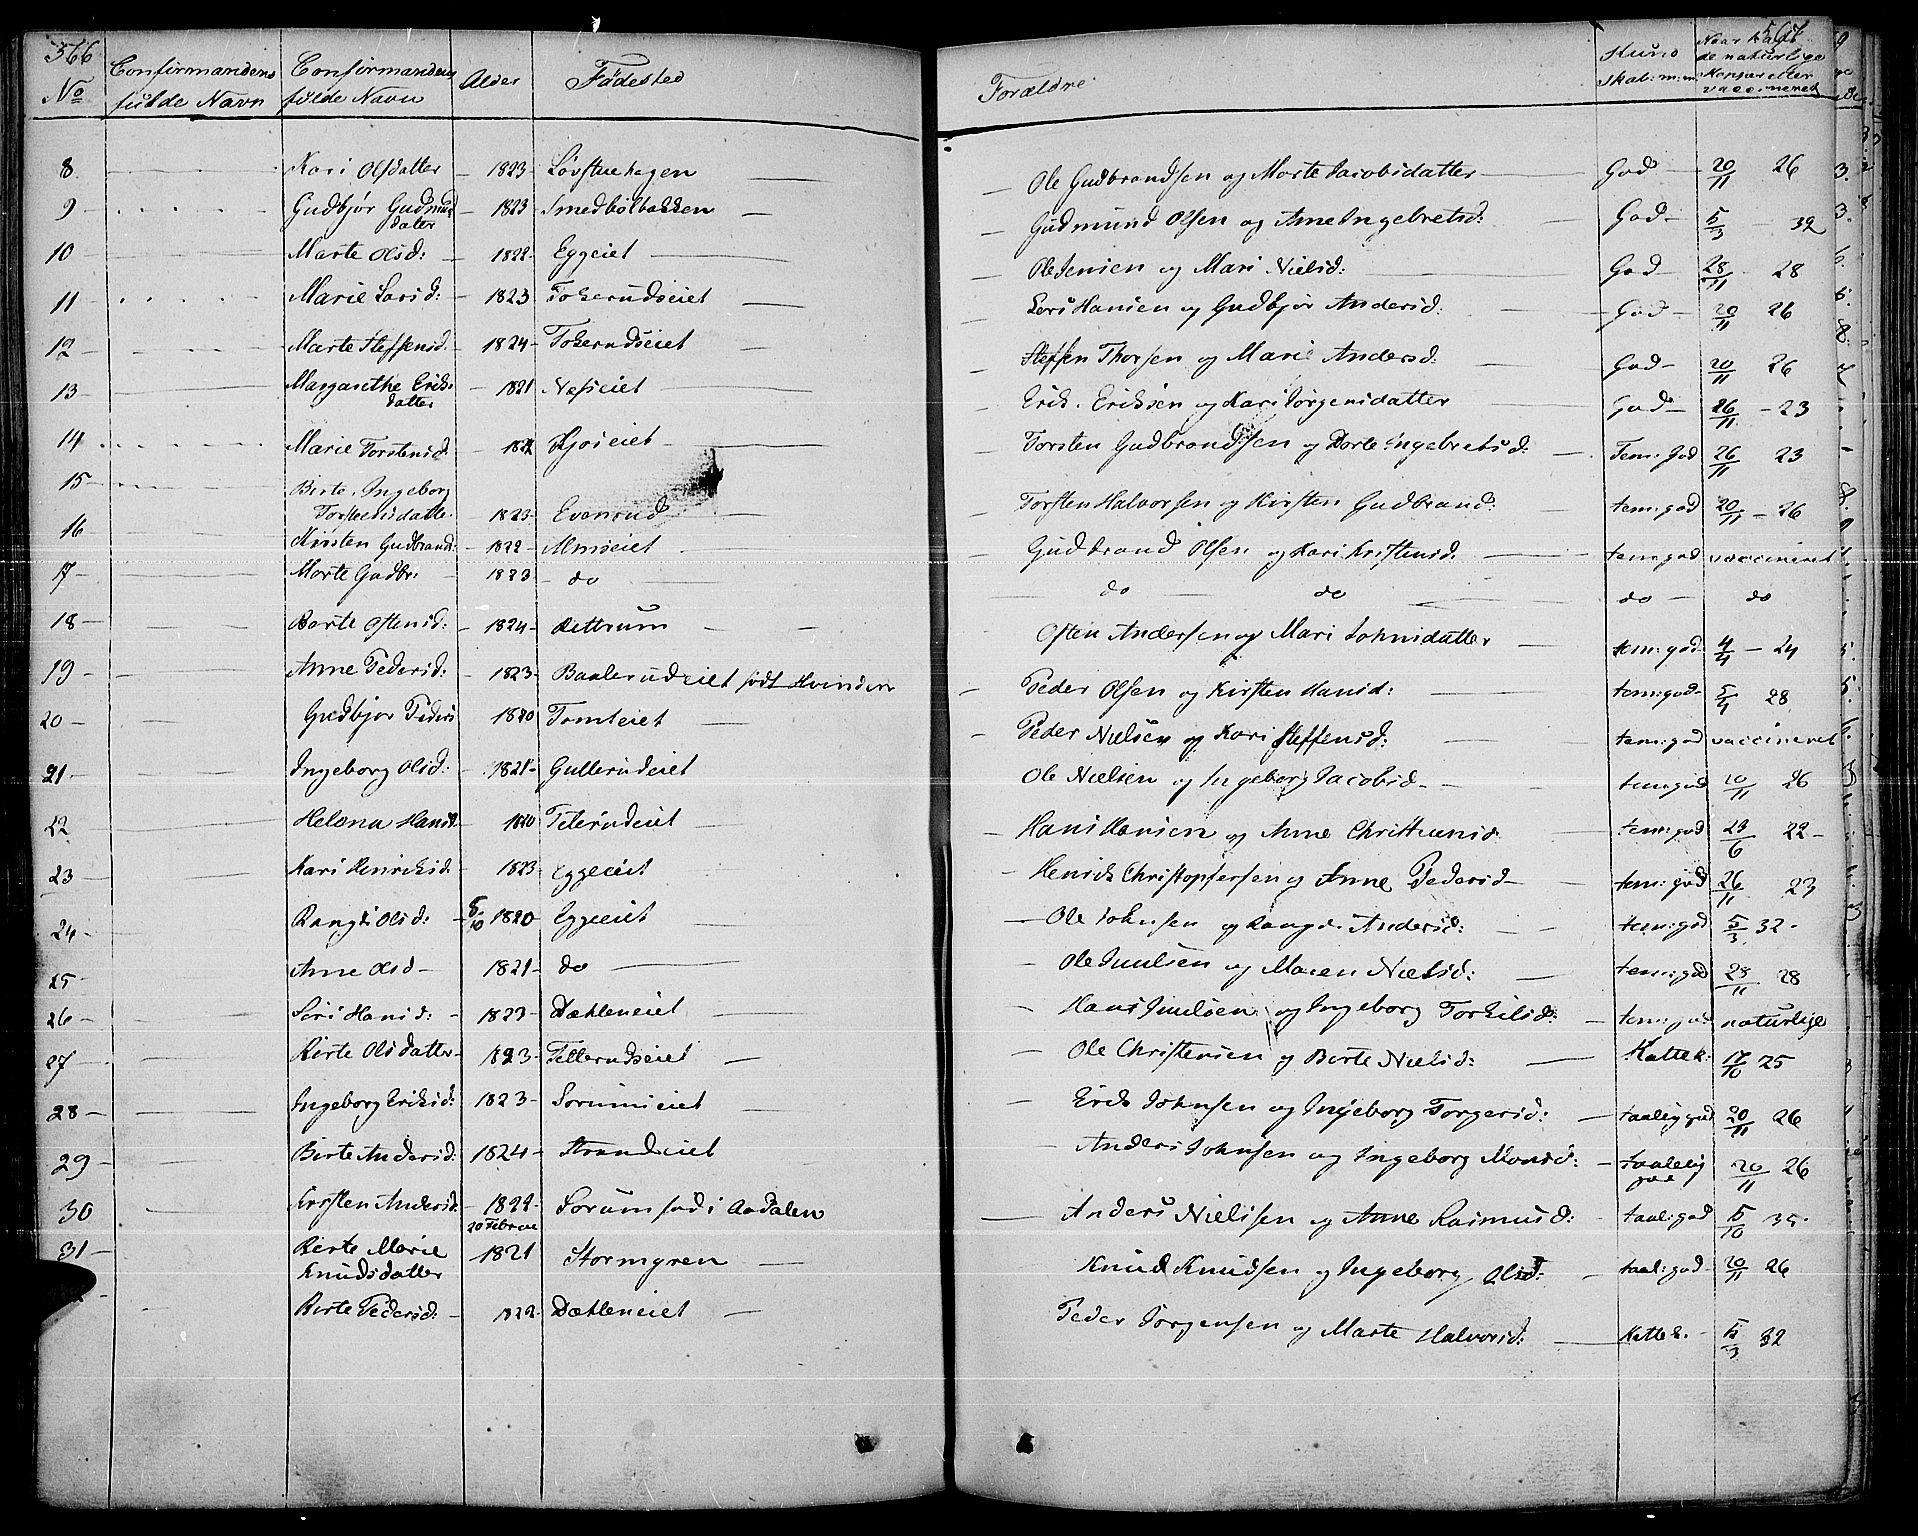 566
No Confirmandens fulde Navn Confirmandens fulde Navn Alder Fødested Forældre Kundskab: m:m: Naar havt de naturlige Kopper eller vaccineret 567
8 Kari Olsdatter - 1823 Løvstuehagen - Ole Gudbrandsen og Marte Jacobsdatter - God - 20/11 26
9 Gudbjør Gudmunddatter - 1823 Smedbølbakken - Gudmund Olsen og Anne Ingebretsd: - God - 5/3 - 32
10 Marte Olsd: - 1822 - Eggeiet - Ole Jensen og Mari Nielsd: God - 28/11 - 28
11 Marie Larsd: - 1823 Tokerudseiet - Lars Hansen og Gudbjør Andersd: - God - 20/11 26
12 Marte Steffensd. 1824 - Tokerudseiet - Steffen Thorsen og Marie Andersd: God - 20/11 26
13 Margarethe Eriksdatter - 1821 Næsseiet - Erik Eriksen og Kari Jørgensdatter God - 26/11 - 23
14 Marie Torstensd - 1822 Kjøseiet - Torsten Gudbrandsen og Dorte Ingebretsd: - Tem: God 26/11 23
15 Birte Ingeborg Torstensdatter 1823 - Evenrud - Torsten Halvorsen og Kirsten Gudbrand: tem: god 20/11 - 26
16 Kirsten Gudbrand: - 1822 - Almseiet - Gudbrand Olsen og Kari Kristensd: - tem: god vaccineret
17 - Marte Gudbr: - 1823 - do - do - do - do - do
18 - Barte Ostensd: - 1824 - Rettrum - Osten Andersen og Mari Johnsdatter - tem: god 4/4 - 24
19 - Anne Pedersd: - 1823 - Baalerudeiet født Hvinden - Peder Olsen og Kirsten Hansd: tem: god - 5/4 28
20 - Gudbjør Peders 1820 Tomteiet - Peder Nielsen og Kari Steffensd: tem: god vaccineret
21 - Ingeborg Olsd: - 1821 - Gullerudeiet Ole Nielsen og Ingeborg Jacobsd - tem: god 20/11 26
22 Helena Hansd 1820 Teterudeiet - Hans Hansen og Anne Christiansd tem: god 23/6 22 -
23 Kari Henriksd 1823 Eggeiet - Henrik Christophersen og Anne Pedersd - tem: god 26/11 23
24 - Rangdi Olsd: - 5/10 1820 - Eggeiet - Ole Johnsen og Rangdi Andersd: - tem: god 5/3 32 -
25 - Anne Olsd - 1821 - do - Ole Juulsen og Maren Nielsd: - tem: god 28/11 28
26 - Siri Hansd: - 1823 - Dæhleneiet - Hans Juulsen og Ingeborg Torkilsd: - tem: god naturlige
27 Birte Olsdatter - 1823 - Tellerudseiet - Ole Christensen og Berte Nielsd: - Kattek: 17/10 25
28 - Ingeborg Eriksd: 1823 - Sorumseiet - Erik Johnsen og Ingeborg Torgersd: - taalig god 20/11 26
29 - Birte Andersd: 1824 - Strandeiet - Anders Johnsen og Ingeborg Monsd: - taalelig god 20/11 26
30 Kirsten Andersd - 1822 - Sorum fød i Aadalen - Anders Nielssen og Anne Rasmusd: - taal: god 5/10 35 -
31 - Birte Marie Knudsdatter 20 Februar 1821 Stormyren - Knud Knudsen og Ingeborg Olsd: - taal: god - 20/11 26
Birte Pedersd: - 1822 - Dæhleneiet - Peder Jørgensen og Marte Halvorsd: - Kattek. - 5/3 32